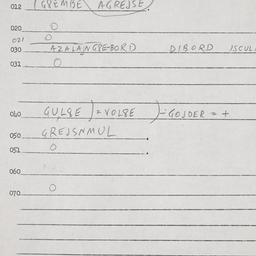 012 (GPEMBE AGREJSE)
020 O
021 O
030 AZALAJNGPE-BORD DIBORD ISCUL
031 O
040 GULSE )=VOLSE )-GOJDER = +
050 GREJSNMUL
051 O
060
070 O